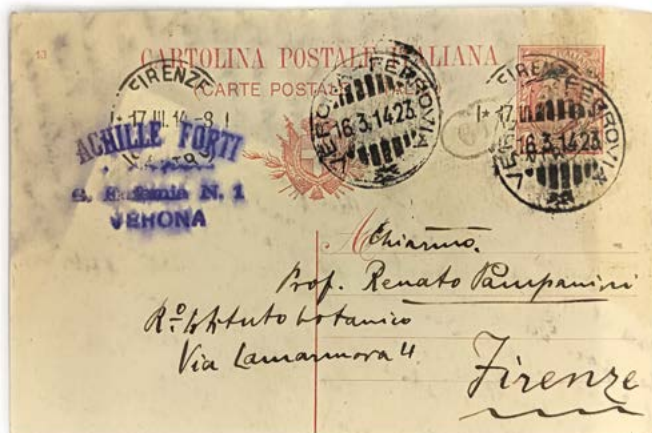 13
CARTOLINA POSTALE ITALIANA
(CARTE POSTALE
FIRENZE
17.III.14-8
VERONA FERROVIA
16.3.14 23
FIRENZE
17.III
VERONA FERROVIA
16.3.14 23
ACHILLE FORTI
S. Eufemia N. 1
VERONA
A Chiarmo.
Prof. Renato Pampanini
Ro. Istituto botanico
Via Lamarmora 4
Firenze